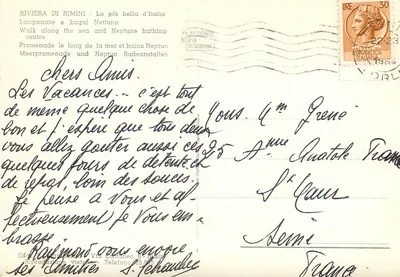 RIVIERA DI RIMINI - La più bella d'Italia
Lungomare e bagni Nettuno
Walk along the sea and Neptune bathing-
centre
Promenade le long de la mer et bains Neptun
Meerpromenade und Neptun Badeanstalten
IRE 30
Chers Amis.
Les Vacances... c'est tout
de même quelque chose de
bon et j'espère que tous deux
vous allez goûter aussi ces
quelques jours de détente et
de repos, loin des soucis.
Je pense à Vous et af-
fectueusement je Vous em-
brasse
vous envoie
ses amitiés S.
Mons. Mme
25 Anatole France
St Maur
Seine
France